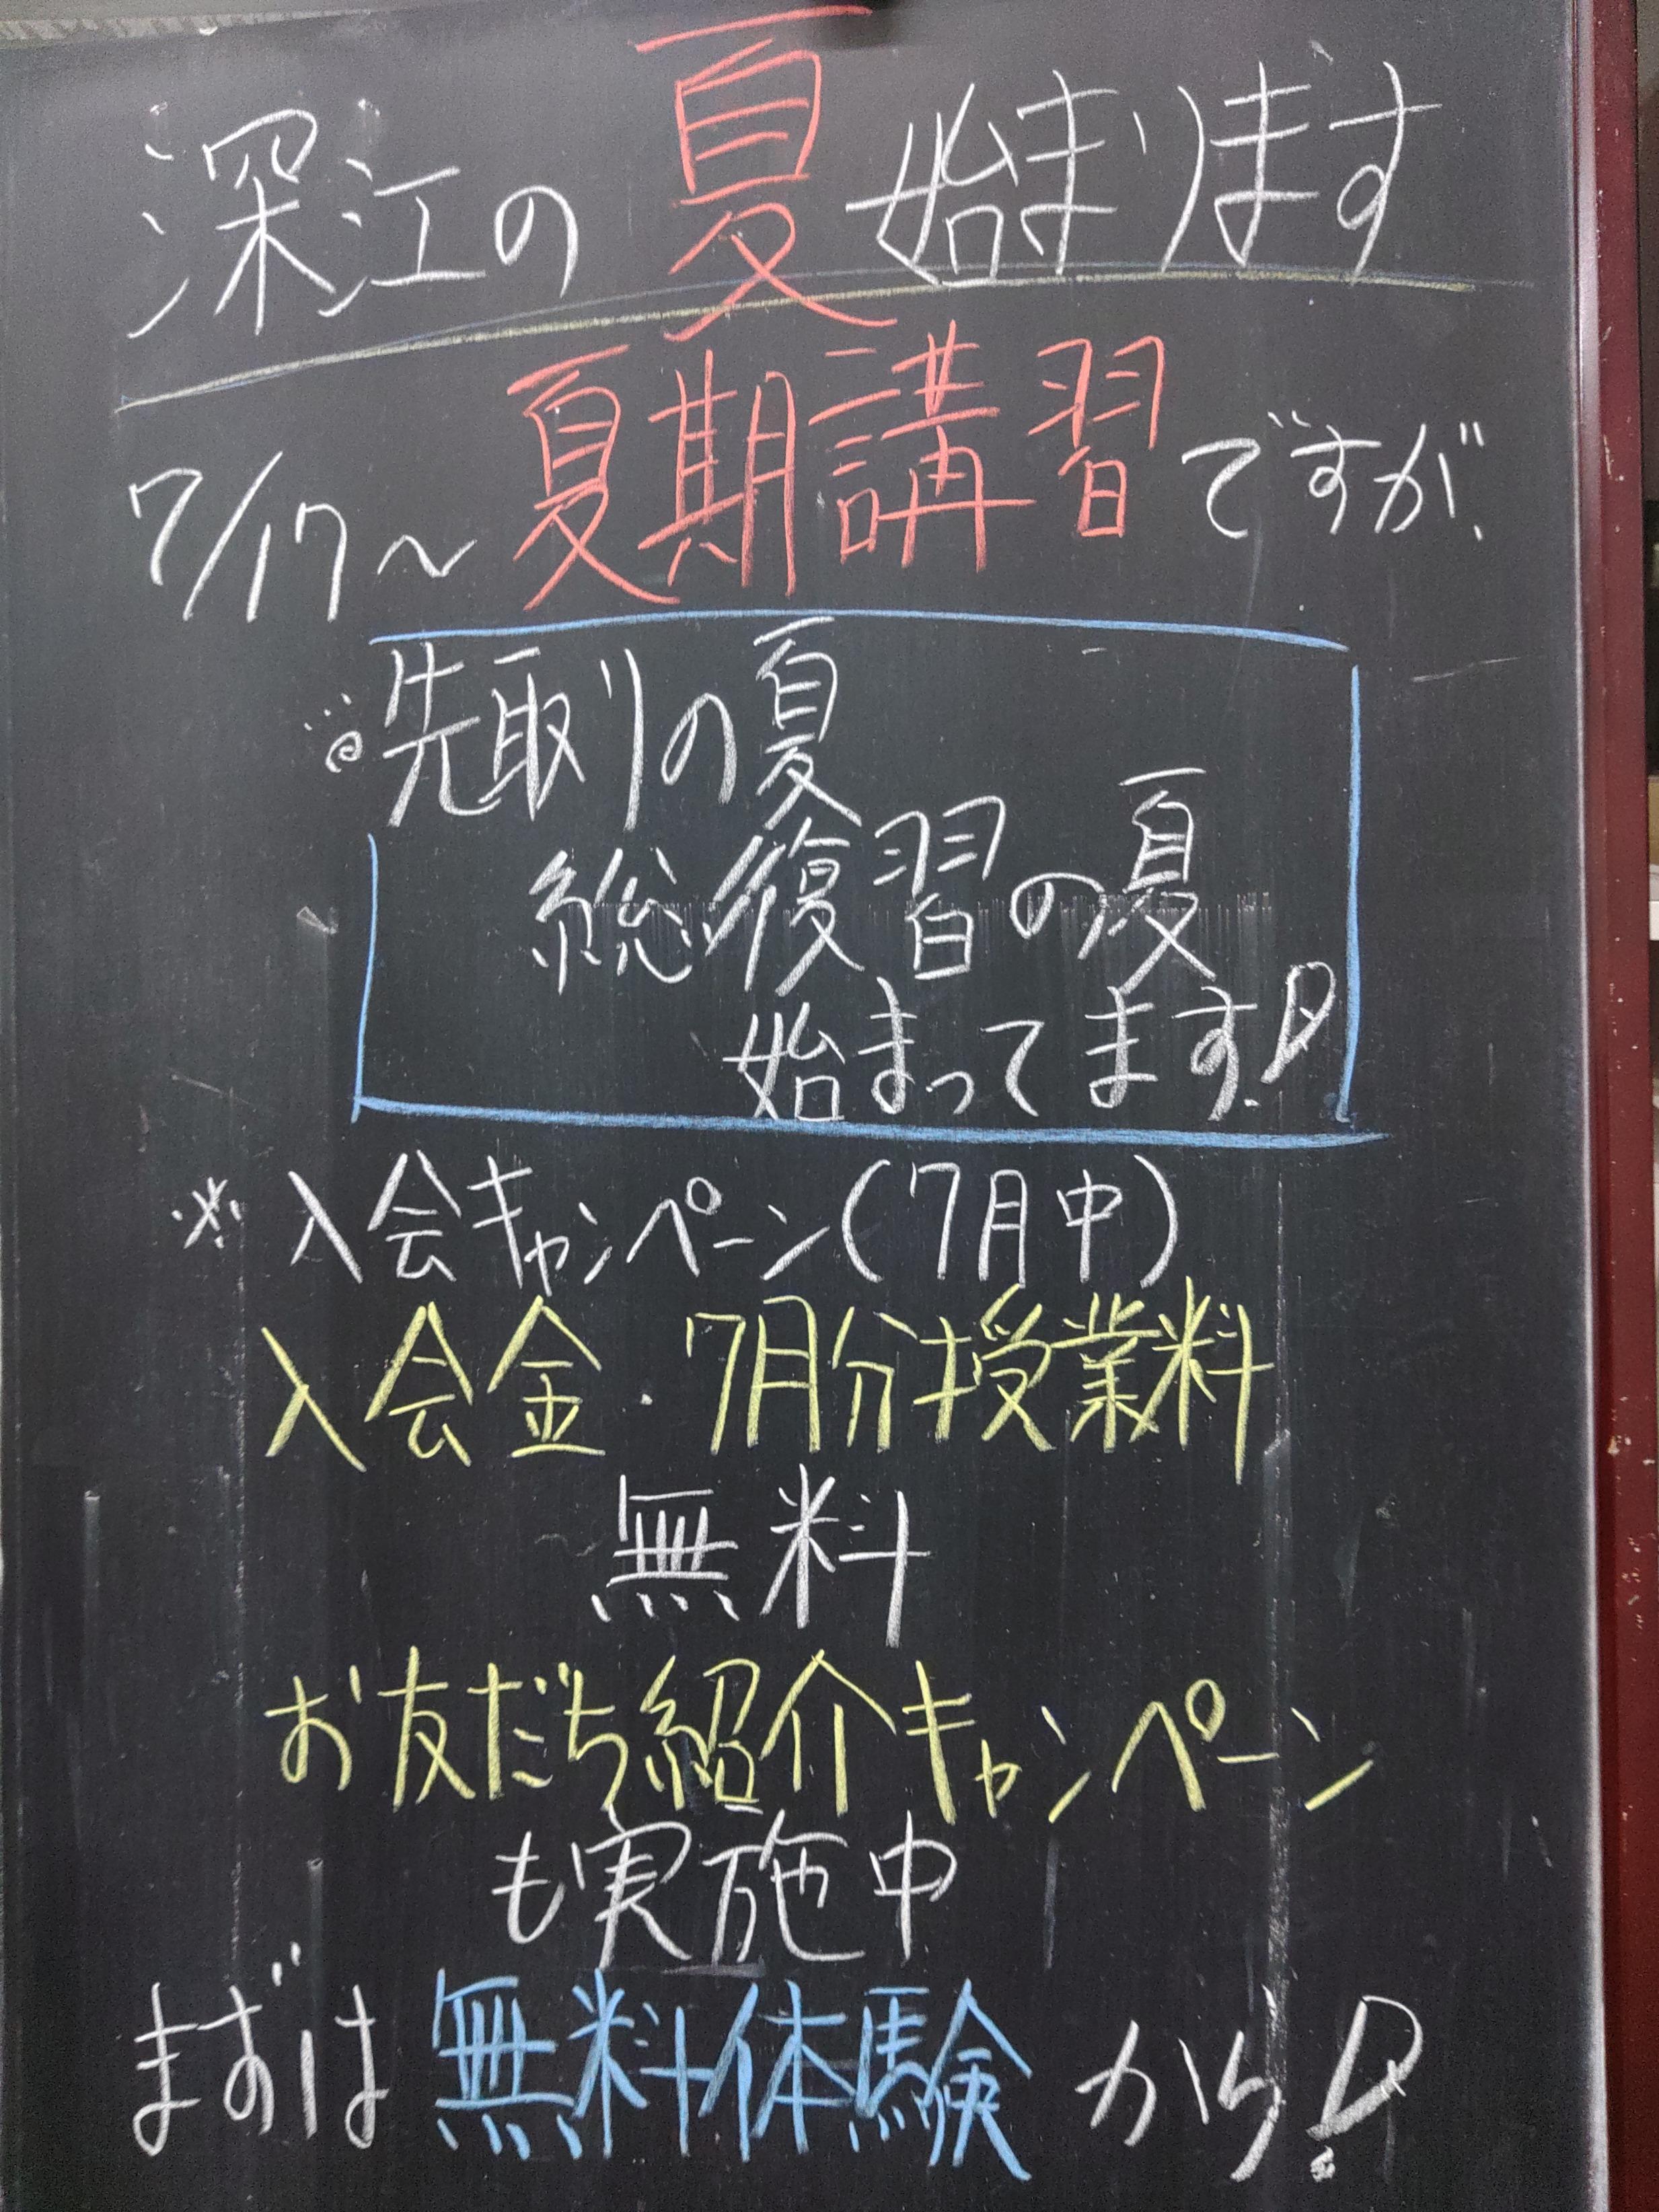 深江の夏始まります
7/17〜夏期講習ですが、
先取りの夏
総復習の夏
始まってます!
※入会キャンペーン(7月中)
入会金・7月分授業料
無料
お友だち紹介キャンペーン
も実施中
まずは無料体験から!